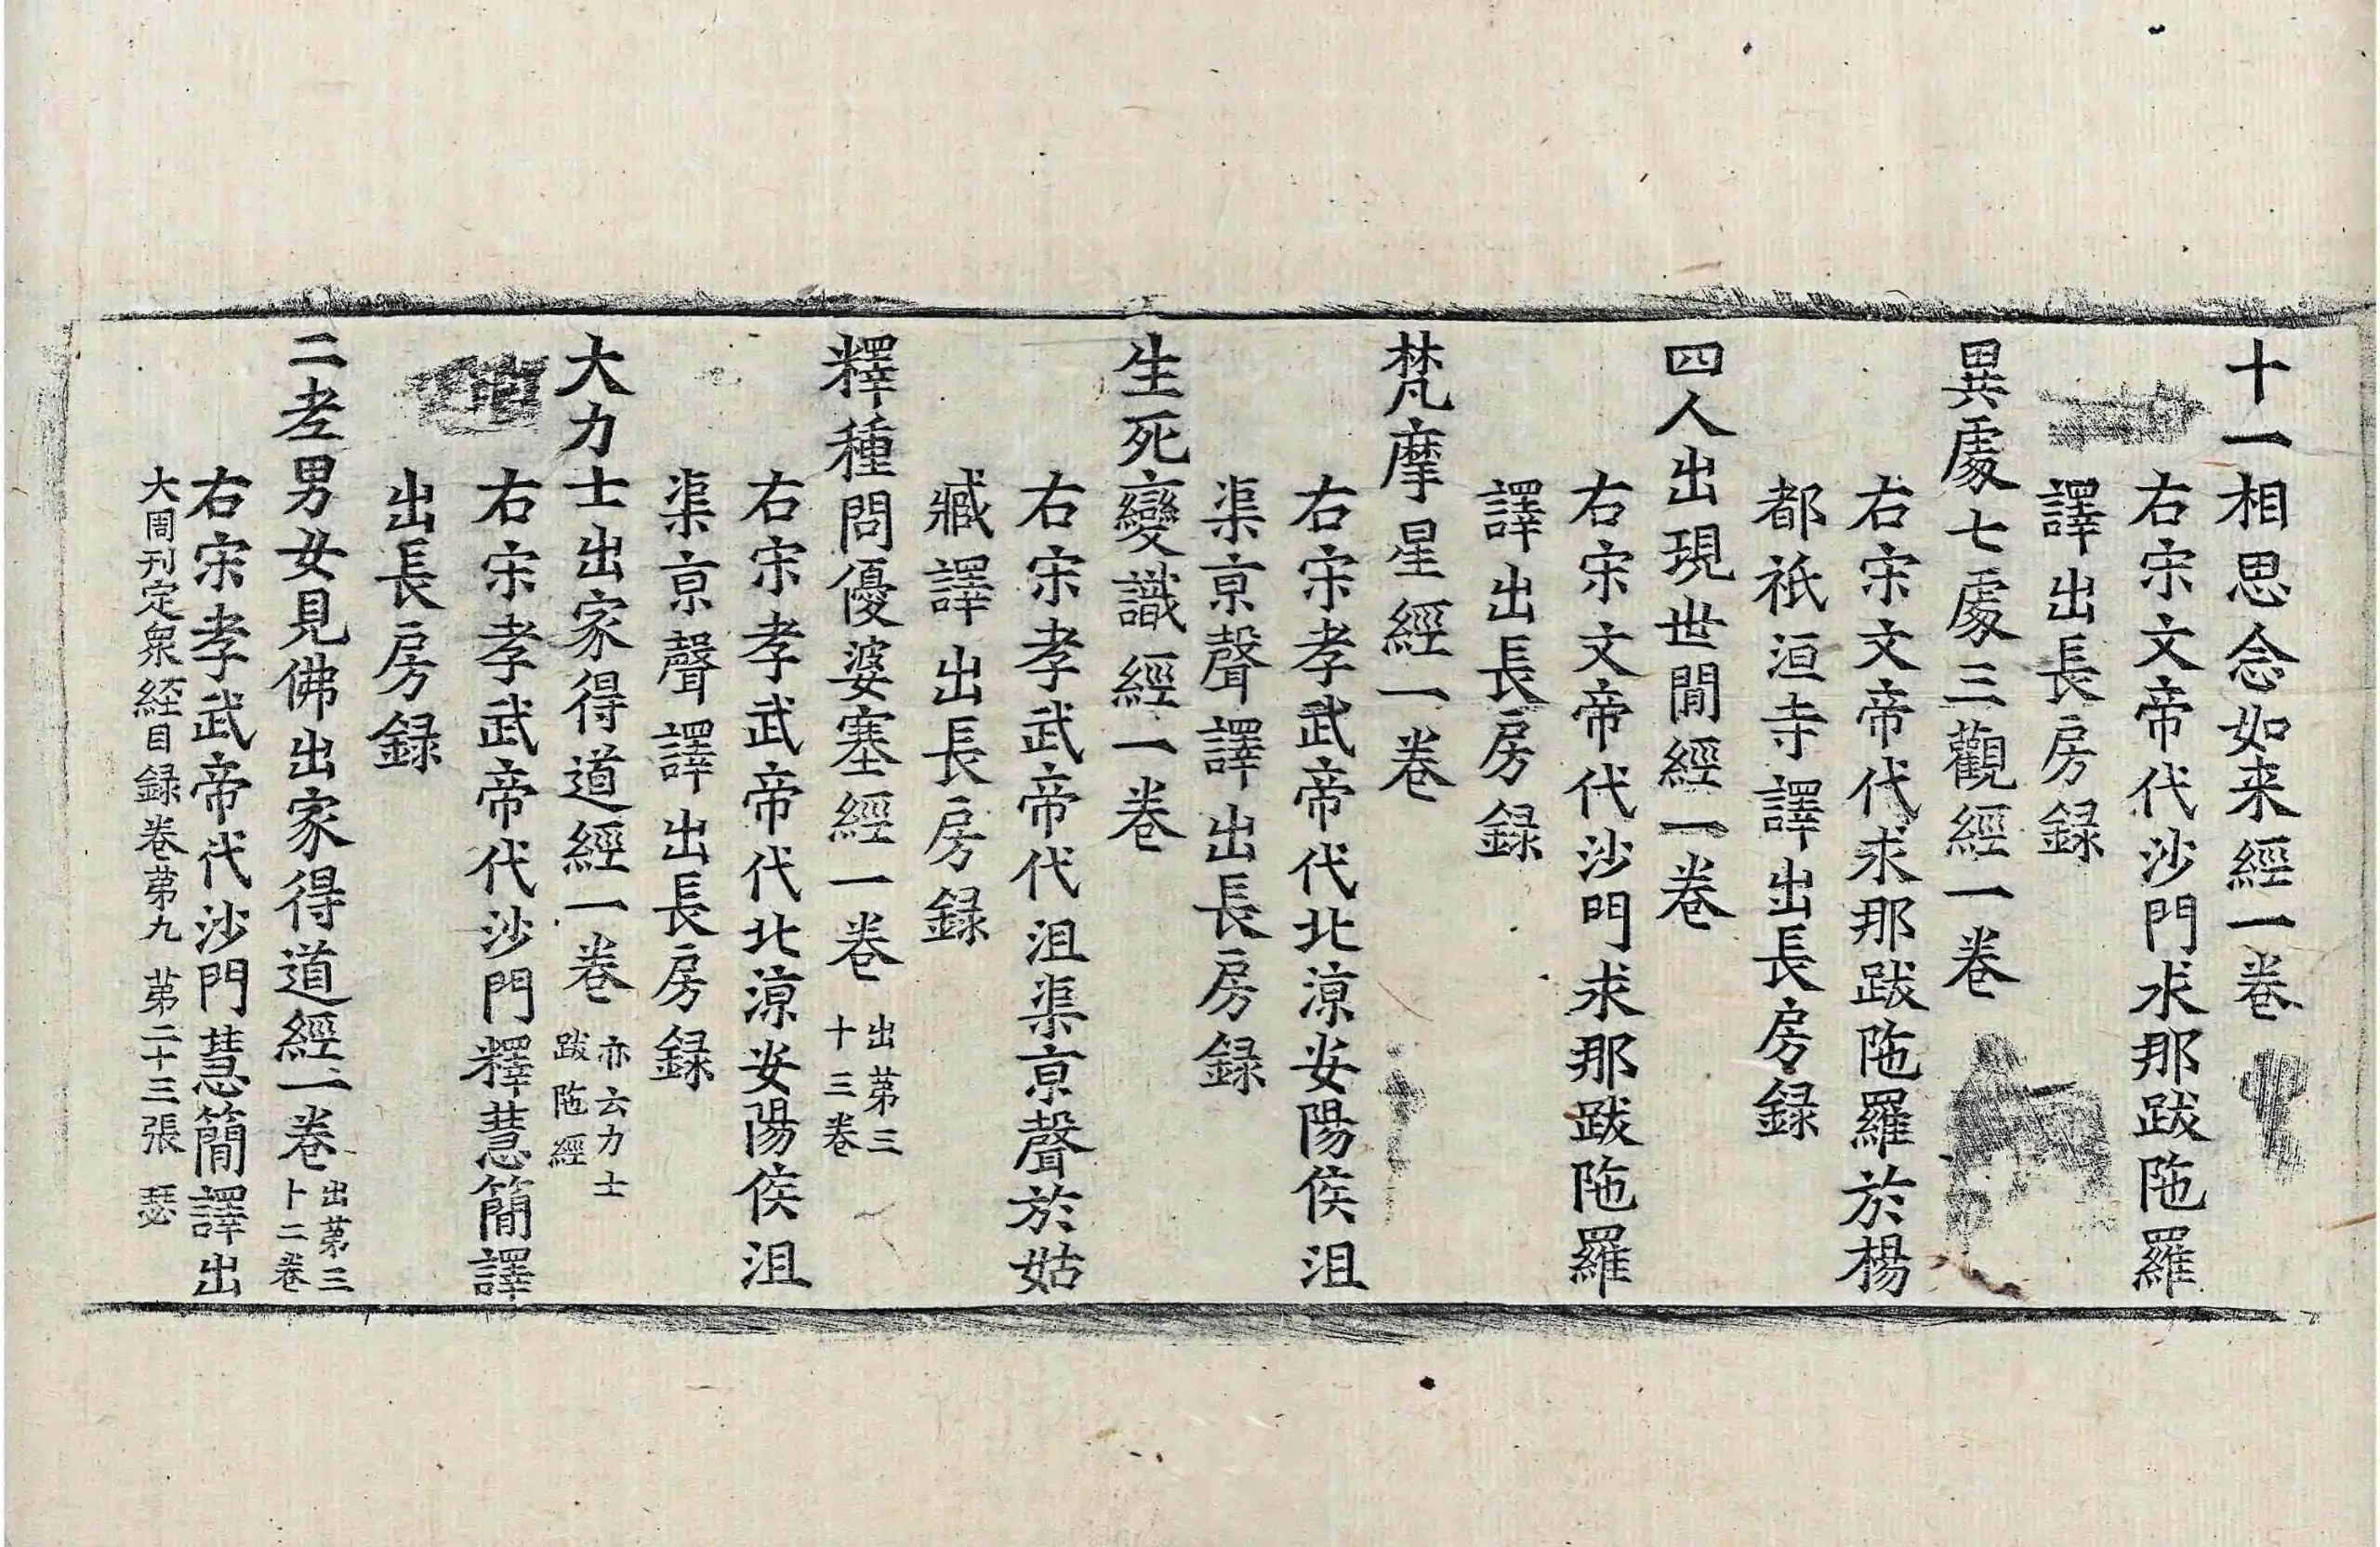 十一相思念如来經一卷
右宋文帝代沙門求那跋陁羅
譯出長房録
異處七處三觀經一卷
右宋文帝代求那跋陁羅於楊
都祇洹寺譯出長房録
四人出現世閒經一卷
右宋文帝代沙門求那跋陁羅
譯出長房録
梵摩星經一卷
右宋孝武帝代北涼安陽侯沮
渠京聲譯出長房録
生死變識經一卷
右宋孝武帝代沮渠京聲於姑
臧譯出長房録
釋種問優婆塞經一卷 出苐三
十三卷
右宋孝武帝代北涼安陽侯沮
渠京聲譯出長房録
大力士出家得道經一卷 亦云力士
跋陁經
右宋孝武帝代沙門釋慧簡譯
出長房録
二孝男女見佛出家得道經一卷 出苐三
卜二卷
右宋孝武帝代沙門慧簡譯出
大周刊定衆経目録卷苐九 苐二十三張 瑟